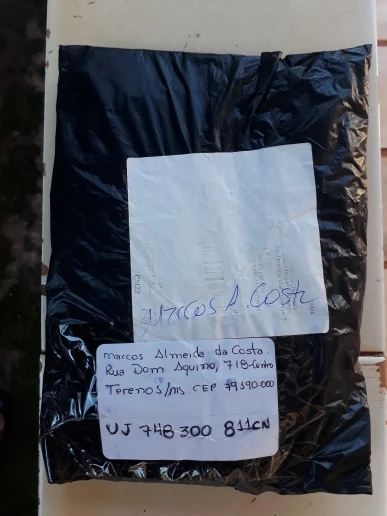 Marcos A. Costa
Marcos Almeida da Costa.
Rua Dom Aquino, 718-Centro
Terenos/MS CEP 79190-000
UJ 748 300 811CN